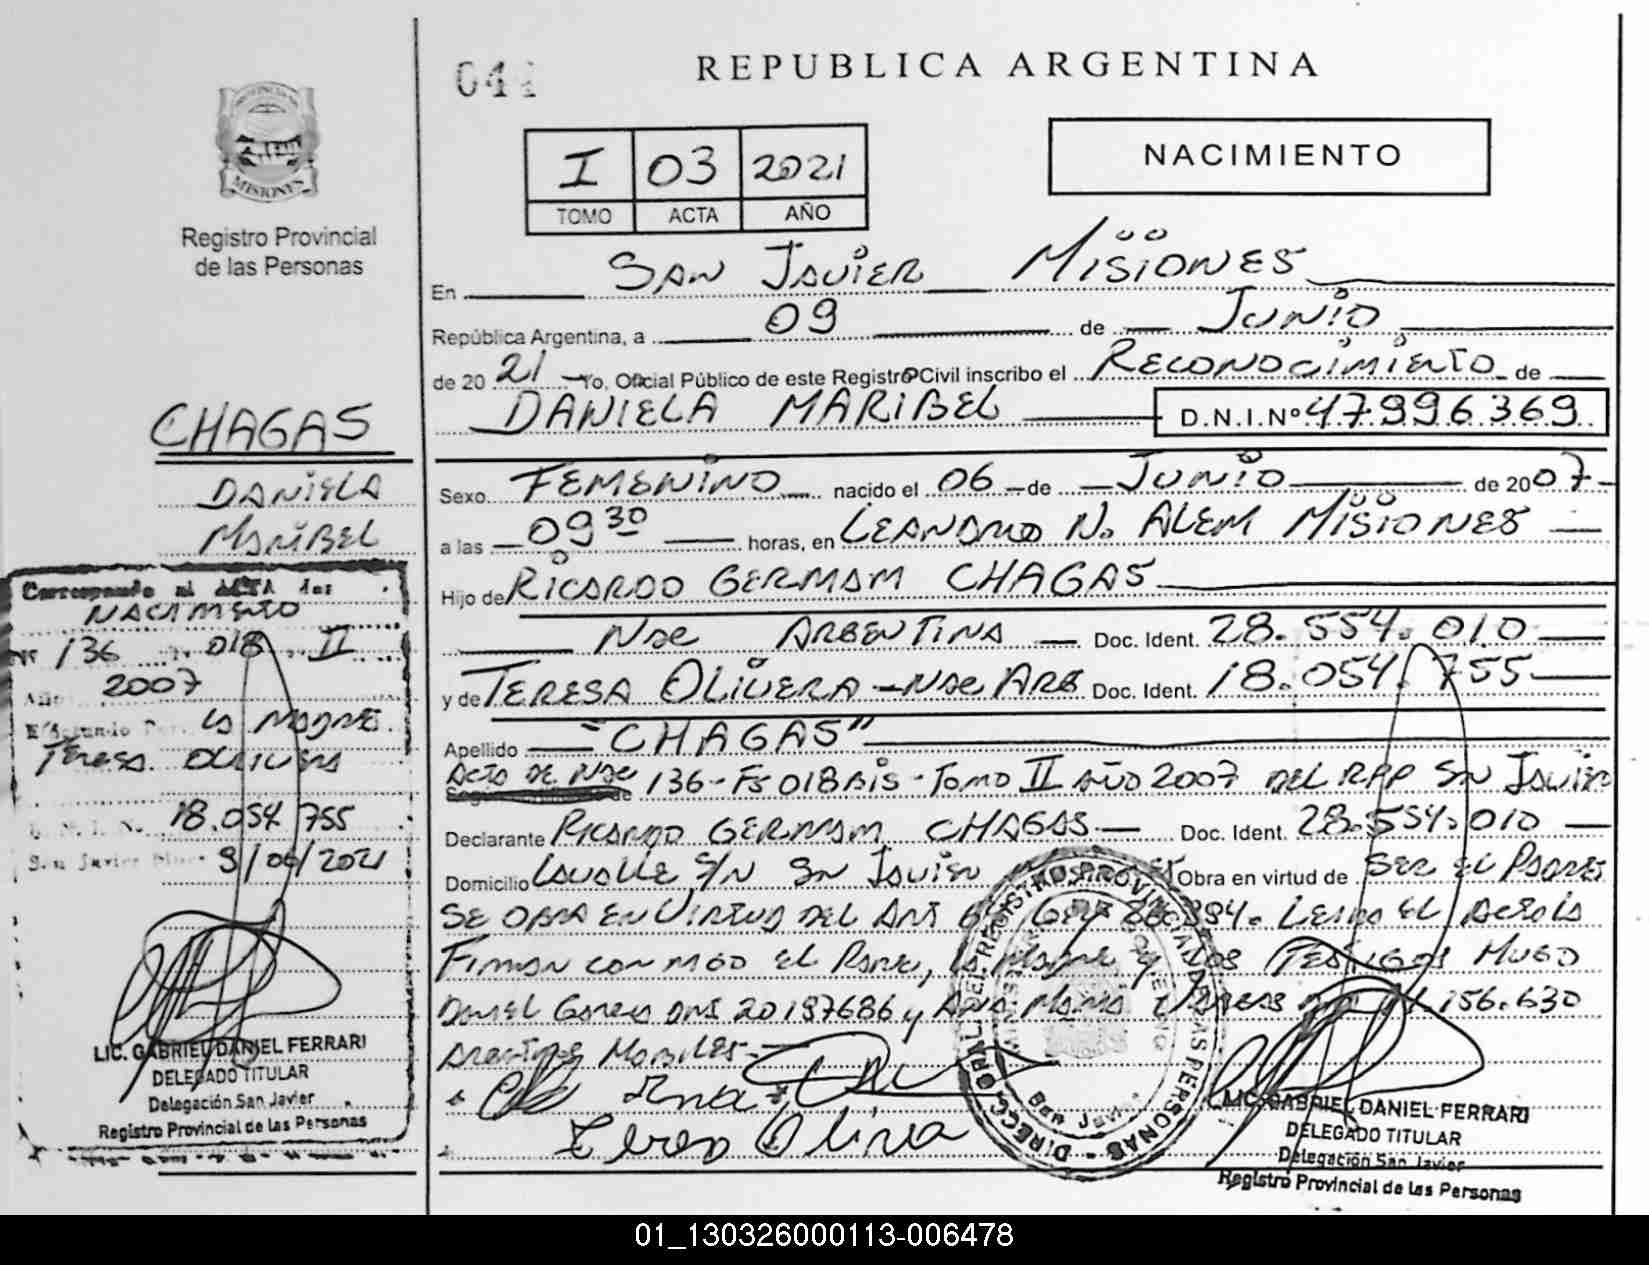 REPUBLICA ARGENTINA
NACIMIENTO
I 03 2021
TOMO ACTA AÑO
MISIONES
Registro Provincial
de las Personas
En SAN JAVIER MISIONES
República Argentina, a 09 de JUNIO
de 20 21 Yo, Oficial Público de este Registro Civil inscribo el RECONOCIMIENTO de
DANIELA MARIBEL D.N.I.Nº 47.996.369
CHAGAS
DANIELA
MARIBEL
Sexo FEMENINO nacido el 06 de JUNIO de 2007
a las 09 30 horas, en LEANDRO N. ALEM MISIONES
Hijo de RICARDO GERMAM CHAGAS
Nac ARGENTINA Doc. Ident. 28.554.010
y de TERESA OLIVERA - Nac ARG Doc. Ident. 18.054.755
Apellido "CHAGAS"
Acta de Nac 136 - Fs 018 Bis - Tomo II AÑO 2007 DEL RPP San Javier
Declarante RICARDO GERMAM CHAGAS Doc. Ident. 28.554.010
Domicilio LAVALLE S/N San Javier Obra en virtud de SER EL PADRE
SE OBRA EN VIRTUD DEL ART LEY LEIDA EL ACTA LA
FIRMAN CON MGO EL PADRE, LA MADRE y LOS TESTIGOS HUGO
DANIEL DNI 20197686 y ANA MARIA 156.630
MOBILES.
Ana
Teresa Olivera
Corresponde al ACTA de:
NACIMIENTO
Nº 136 018 II
Año 2007
LA MADRE
TERESA OLIVERA
18.054.755
San Javier 9/06/2021
LIC. GABRIEL DANIEL FERRARI
DELEGADO TITULAR
Delegación San Javier
Registro Provincial de las Personas
LIC. GABRIEL DANIEL FERRARI
DELEGADO TITULAR
Delegación San Javier
Registro Provincial de las Personas
01_130326000113-006478